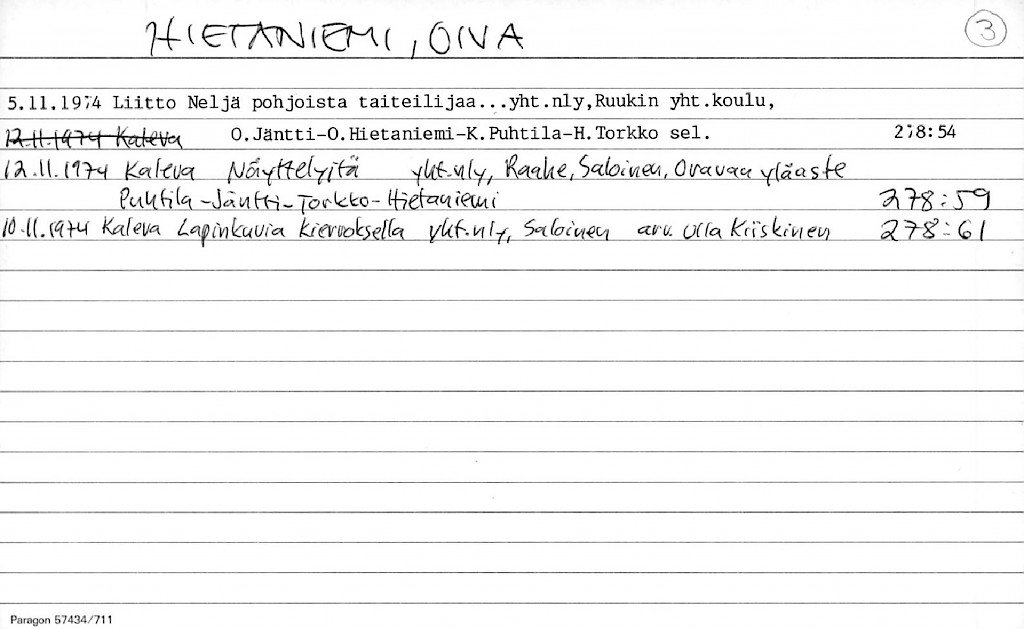 HIETANIEMI, OIVA
3
5.11.1974 Liitto Neljä pohjoista taiteilijaa...yht.nly,Ruukin yht.koulu,
12.11.1974 Kaleva O.Jäntti-O.Hietaniemi-K.Puhtila-H.Torkko sel. 278:54
12.11.1974 Kaleva Näyttelyitä yht.nly, Raahe, Saloinen, Oravan yläaste
Puhtila-Jäntti-Torkko-Hietaniemi 278:59
10.11.1974 Kaleva Lapinkuvia kierroksella yht.nly, Saloinen arv. Ulla Kiiskinen 278:61
Paragon 57434/711